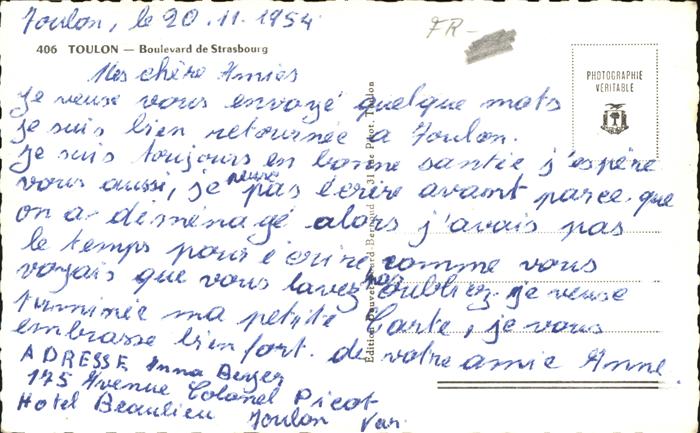 Toulon, le 20.11.1954
FR-
406 TOULON — Boulevard de Strasbourg
PHOTOGRAPHIE
VÉRITABLE
Mes chère Amies
je veuse vous envoyé quelque mots
je suis bien retournée a Toulon.
je suis toujours en bonne santie j'espère
vous aussi, je peuve pas écrire avant parce que
on a déménagé alors j'avais pas
le temps pour écrire, comme vous
voyais que vous lavez pas oubliez je veuse
terminée ma petite Carte, je vous
embrasse bien fort. de votre amie Anne.
ADRESSE Anna Berger
175 Avenue Colonel Picot
Hotel Beaulieu Toulon Var.
Édition Phot. Toulon